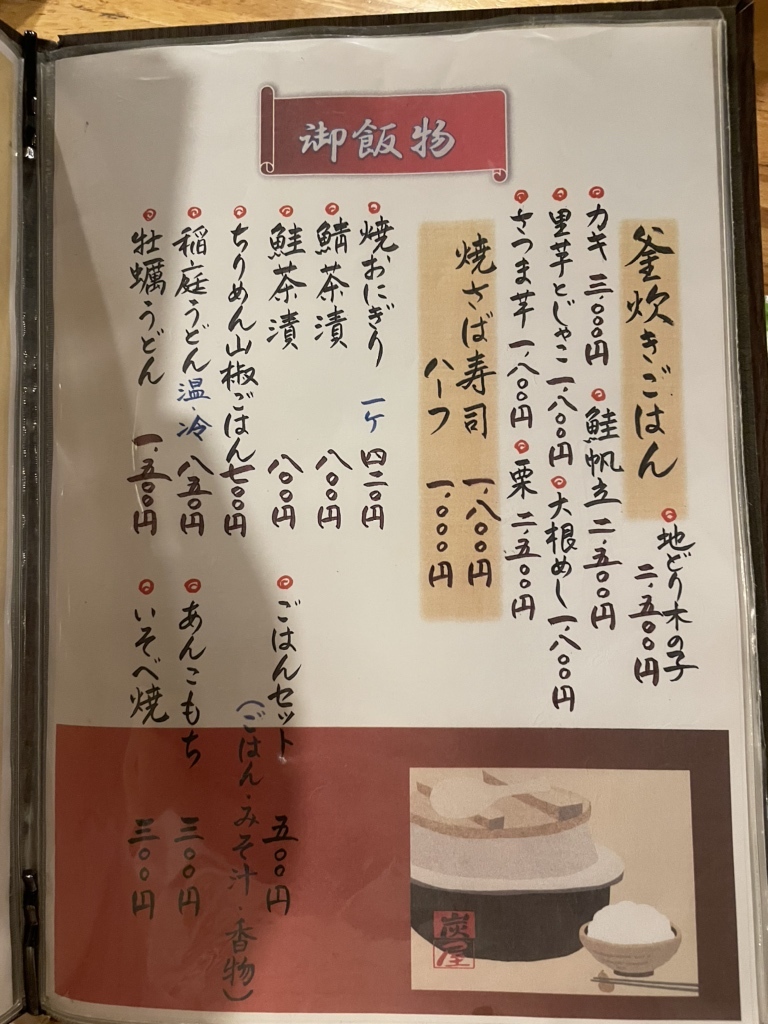 御飯物
釜炊きごはん
地どり木の子 二、五〇〇円
カキ 三、〇〇〇円
鮭帆立 二、五〇〇円
里芋とじゃこ 一、八〇〇円
大根めし 一、八〇〇円
さつま芋 一、八〇〇円
栗 二、五〇〇円
焼さば寿司 一、八〇〇円
ハーフ 一、〇〇〇円
焼おにぎり 一ケ 四二〇円
鯖茶漬 八〇〇円
鮭茶漬 八〇〇円
ちりめん山椒ごはん 七〇〇円
稲庭うどん 温・冷 八五〇円
牡蠣うどん 一、五〇〇円
ごはんセット 五〇〇円
(ごはん・みそ汁・香物)
あんこもち 三〇〇円
いそべ焼 三〇〇円
炭屋